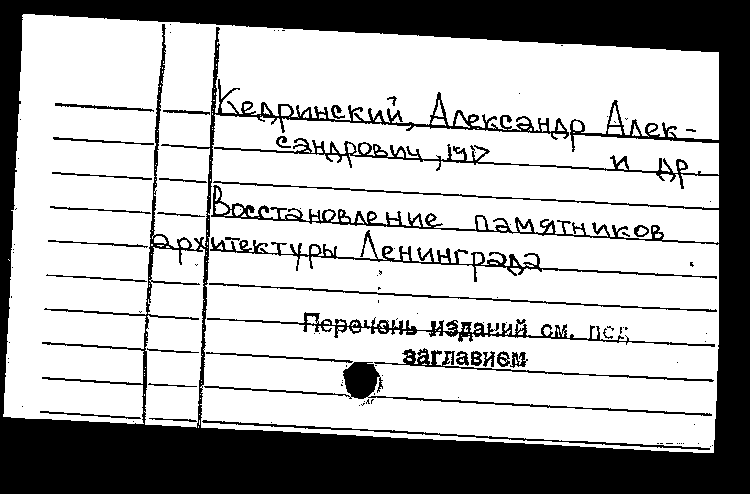 Кедринский, Александр Алек-
сандрович, 191
и др.
Восстановление памятников
архитектуры Ленинграда
Перечень изданий см. под
заглавием